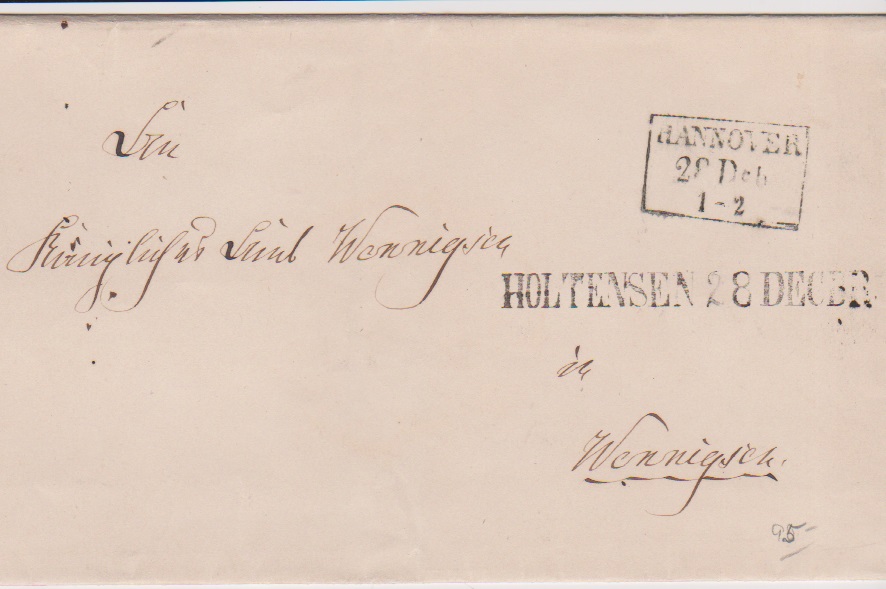 An
HANNOVER
28 Dcb
1-2
Königliches Amt Wennigsen
HOLTENSEN 28 DECBR
in
Wennigsen.
95